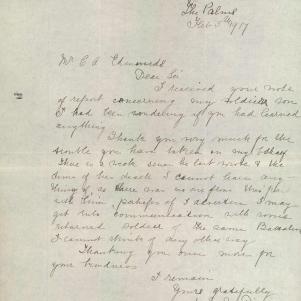 The Palms
Feb 5th 1917
Mr C A
Dear Sir
I received your note
of report concerning my soldier son
I had been wondering if you had learned
anything
Thank you very much for the
trouble you have taken on my behalf
There is a week since he last wrote & the
time of his death I cannot learn any
thing of, as there was no
with him. perhaps if I advertise I may
get into communication with some
returned soldier of the same Battalion
I cannot think of any other way
Thanking you once more for
your kindness
I remain
Yours gratefully